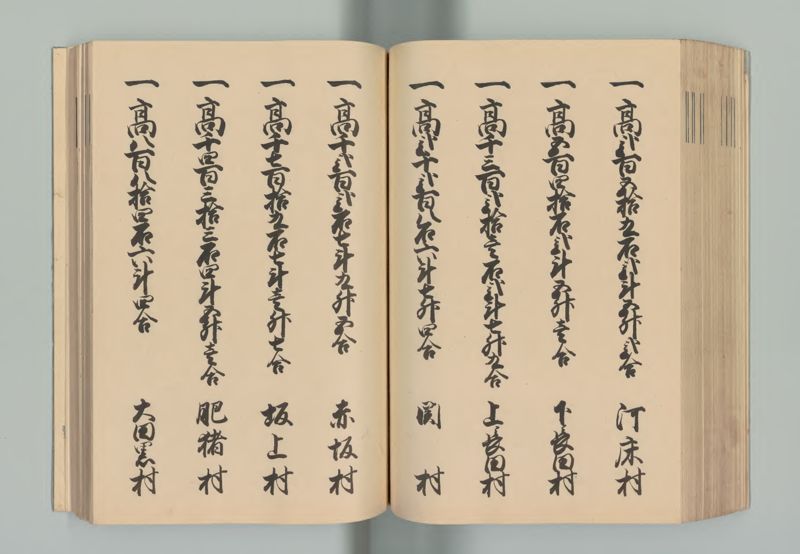 一 高弐百五拾五石弐斗五升弐合 河床村
一 高五百四拾石弐斗五升壱合 下坂田村
一 高千三百弐拾壱石弐斗七升五合 上坂田村
一 高弐千弐百八石六斗七升四合 関村
一 高千弐百弐石七斗九升五合 赤坂村
一 高千七百拾九石七斗壱升七合 坂上村
一 高千四百三拾三石四斗五升壱合 肥猪村
一 高八百八拾四石六斗四合 大田黒村